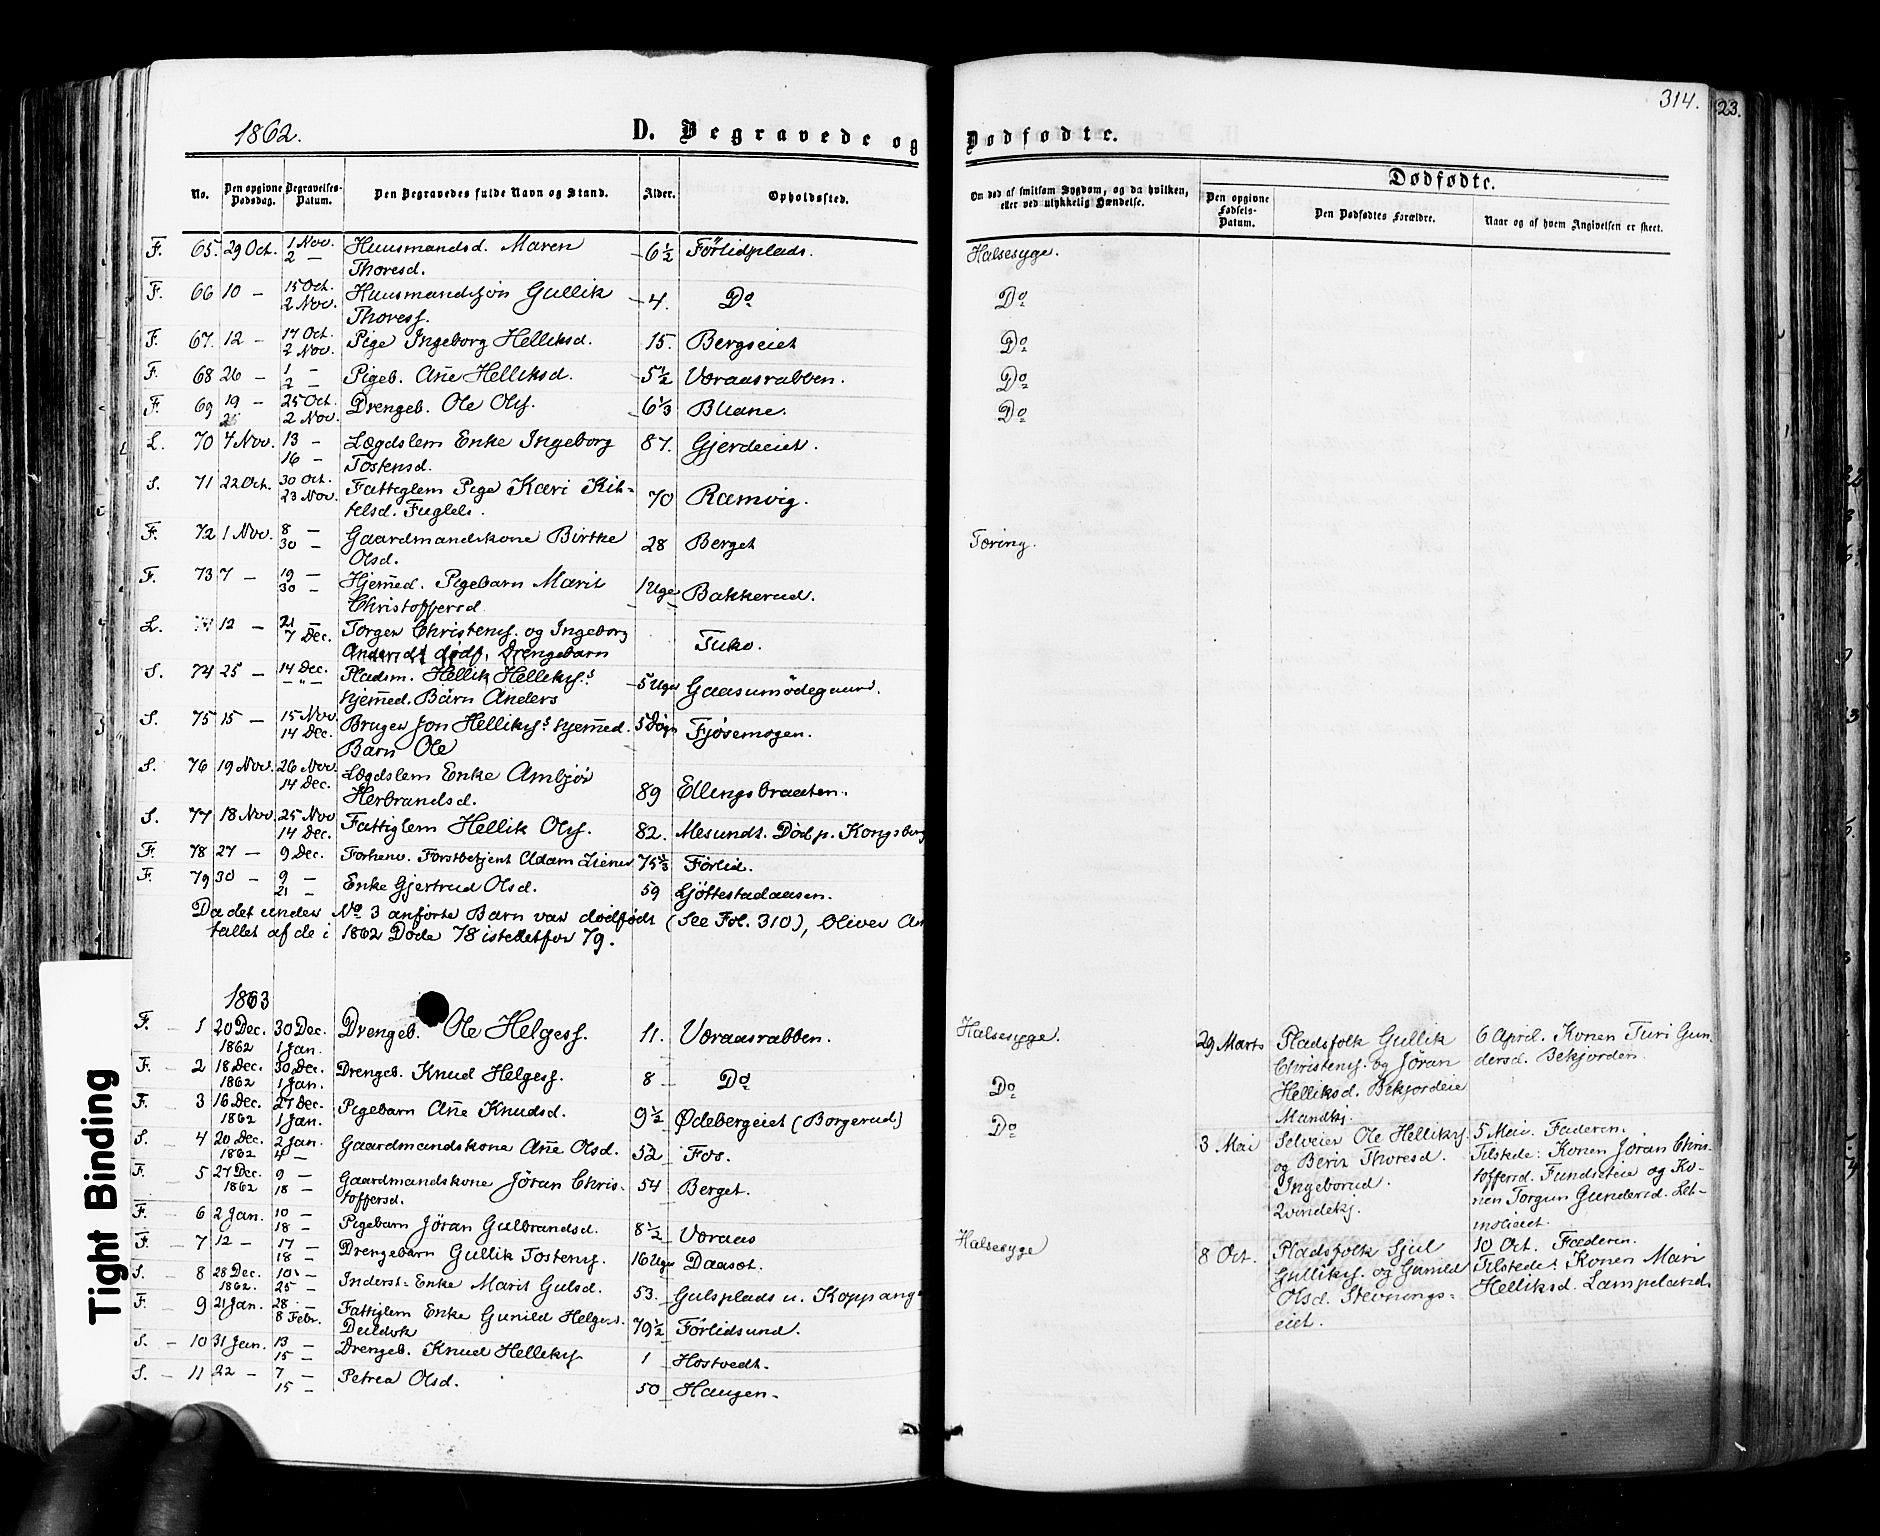 1862.
D. Begravede og
Dødfødte.
314.
23.
No.
Den opgivne Dødsdag.
Begravelses-Datum.
Den Begravedes fulde Navn og Stand.
Alder.
Opholdssted.
Om død af smitsom Sygdom, og da hvilken, eller ved ulykkelig Hændelse.
Dødfødte.
Den opgivne Fødsels-Datum.
Den Dødfødtes Forældre.
Naar og af hvem Angivelsen er skeet.
F. 65. 29 Oct. 1 Nov. Huusmandsd. Maren 6½ Förlidplads. Halsesyge.
2 — Thoresd.
F. 66 10 — 15 Oct. Huusmandssön Gullik 4. Do Do
2 Nov. Thoress.
F. 67. 12 — 17 Oct. Pige Ingeborg Helliksd. 15. Bergseiet Do
2 Nov.
F. 68 26 — 1 — Pigeb. Ane Helliksd. 5½ Væraasrabben. Do
2 —
F. 69 19 — 25 Oct. Drengeb. Ole Olss. 6⅓ Bliane. Do
2 Nov.
L. 70 4 Nov. 13 — Lægdslem Enke Ingeborg 87. Gjerdeeiet.
16 — Tostensd.
S. 71 22 Oct. 30 Oct. Fattiglem Pige Kari Kit- 70 Ramvig.
23 Nov. telsd. Fuglels.
F. 72 1 Nov. 8 — Gaardmandskone Birthe 28 Berget Tæring.
30 — Olsd.
F. 73 7 — 19 — Hjemed. Pigebarn Marit 1 Uge Bakkerud.
30 — Christoffersd.
L. 12 — 21 — Torger Christenss. og Ingeborg Tuko.
7 Dec. Andersd. dødf. Drengebarn
S. 74 25 — 14 Dec. Pladsm. Hellik Hellikss.s 5 Uger Gaasumödegaard.
— " — hjemed. Barn Anders
S. 75 15 — 15 Nov Bruger Jon Hellikss.s hjemed. 5 Døgn Fjøsemogen.
14 Dec. Barn Ole
S. 76 19 Nov. 26 Nov. Lægdslem Enke Ambjør 89 Ellingsbraaten.
14 Dec. Herbrandsd.
S. 77 18 Nov 25 Nov Fattiglem Hellik Olss. 82. Mesundt. Død p. Kongsberg
14 Dec.
F. 78 27 — 9 Dec. Forhenv. Forstbetjent Adam 75⅓ Førlid.
F. 79 30 — 9 — Enke Gjertrud Olsd. 59 Gjöttestadaasen.
21 —
Da det under No 3 anførte Barn var dødfødt (See Fol. 310), bliver An
tallet af de i 1862 Døde 78 istedetfor 79.
1863
F. 1 20 Dec. 30 Dec. Drengeb. Ole Helgess. 11. Væraasrabben. Halsesyge.
1862 1 Jan.
F. 2 18 Dec. 30 Dec. Drengeb. Knud Helgess. 8 Do Do
1862 1 Jan.
F. 3 16 Dec. 27 Dec. Pigebarn Ane Knudsd. 9½ Ødebergeiet (Borgerud) Do
1862 1 Jan.
S. 4 20 Dec. 2 Jan. Gaardmandskone Ane Olsd. 52 Fos.
1862 4 —
F. 5 27 Dec. 9 — Gaardmandskone Jøran Chris- 54 Berget.
1862 18 — toffersd.
F. 6 2 Jan. 10 — Pigebarn Jöran Gulbrandsd. 8½ Væraas Halsesyge
18 —
F. 7 12 — 17 — Drengebarn Gullik Tostenss. 16 Uger Daaset.
18 —
S. 8 28 Dec. 10 — Inderst-Enke Marit Gulsd. 53. Gulsplads u. Koppang
1862. 25 —
F. 9 21 Jan. 28 — Fattiglem Enke Gunild Helges. 79½ Förlidsund.
8 Febr.
S. 10 31 Jan. 13 — Drengeb. Knud Hellikss 1 Hostvedt.
15 —
S. 11 22 — 7 — Petrea Olsd. 50 Haugen.
15 —
29 Marts Pladsfolk Gullik 6 April. Konen Turi Gun
Christenss. og Jöran dersd. Bekjorden.
Helliksd. Bekjordeie
Mandkj.
3 Mai Selveier Ole Hellikss. 5 Mai. Faderen.
og Berit Thoresd. Tilstede: Konen Jöran Chris-
Ingeborud. toffersd. Fundseteie og Ko-
Qvindekj. nen Torgun Gundersd. Let-
molieiet.
8 Oct. Pladsfolk Sjul 10 Oct. Faderen.
Gullikss. og Gunild Tilstede: Konen Mari
Olsd. Stevnings- Helliksd. Lampeland.
eiet.
Tight Binding